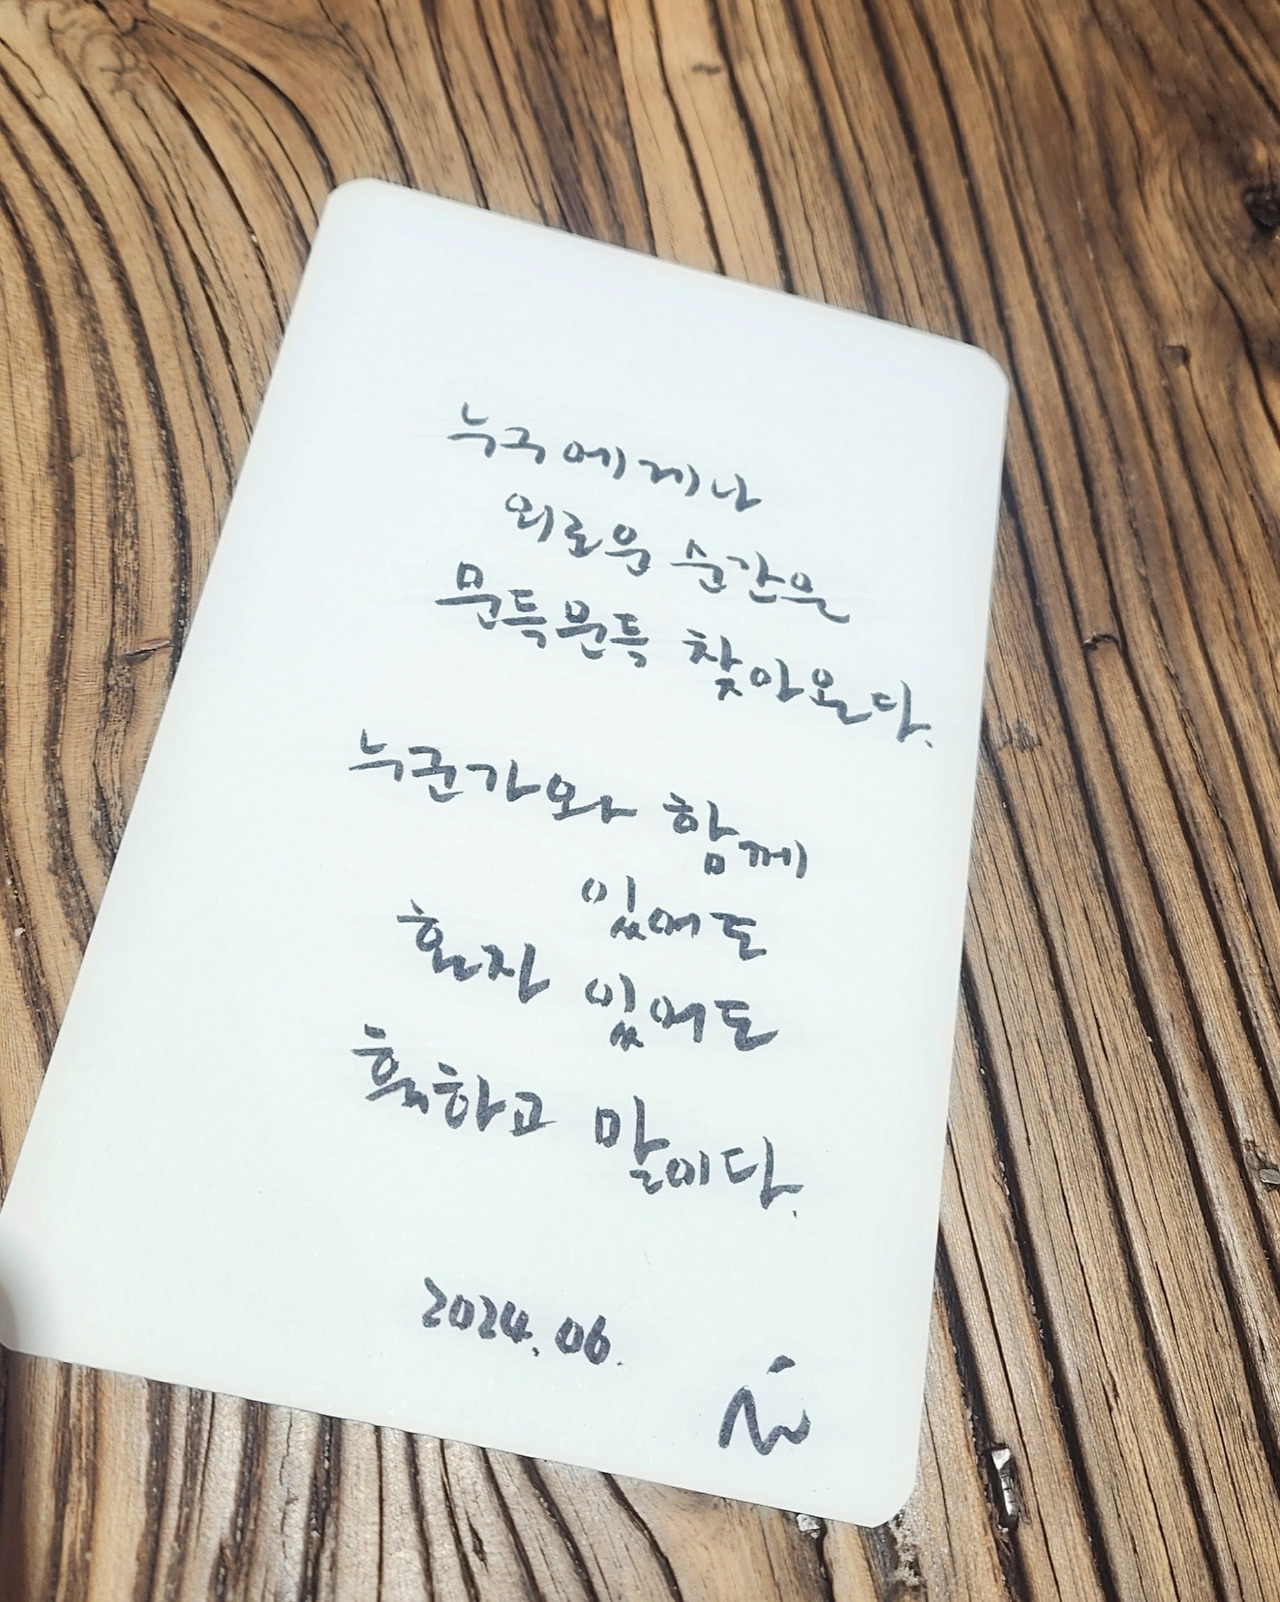 누구에게나
외로운 순간은
문득문득 찾아온다.
누군가와 함께
있어도
혼자 있어도
훅하고 말이다.
2024.06.